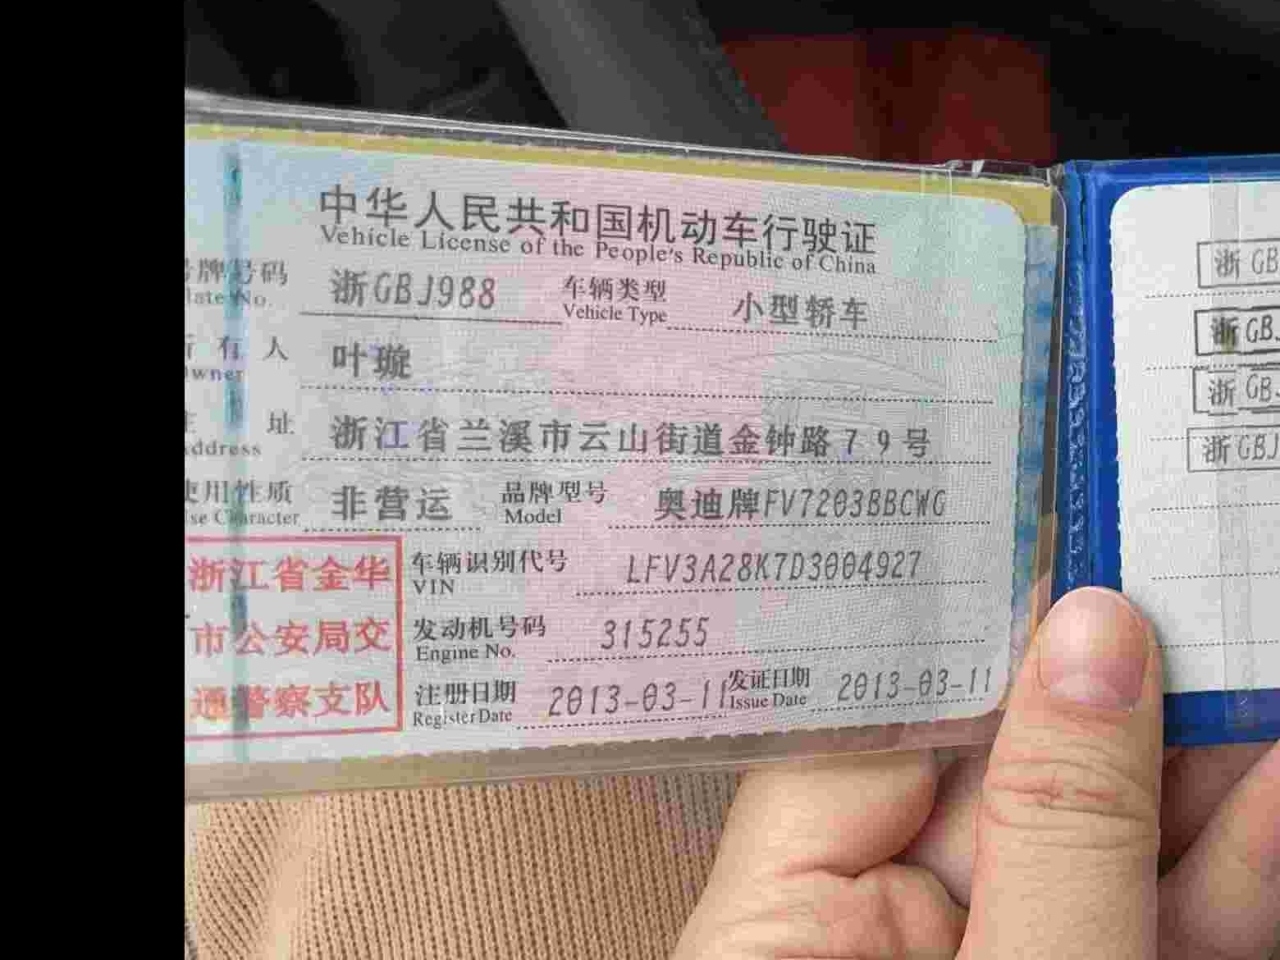 中华人民共和国机动车行驶证
Vehicle License of the People's Republic of China
号牌号码 浙GBJ988 车辆类型 小型轿车
Plate No. Vehicle Type
所有人 叶璇
Owner
住址 浙江省兰溪市云山街道金钟路79号
Address
使用性质 非营运 品牌型号 奥迪牌FV7203BBCWG
Use Character Model
浙江省金华
市公安局交
通警察支队
车辆识别代号 LFV3A28K7D3004927
VIN
发动机号码 315255
Engine No.
注册日期 2013-03-11 发证日期 2013-03-11
Register Date Issue Date
浙GB
浙GB
浙GB
浙GBJ